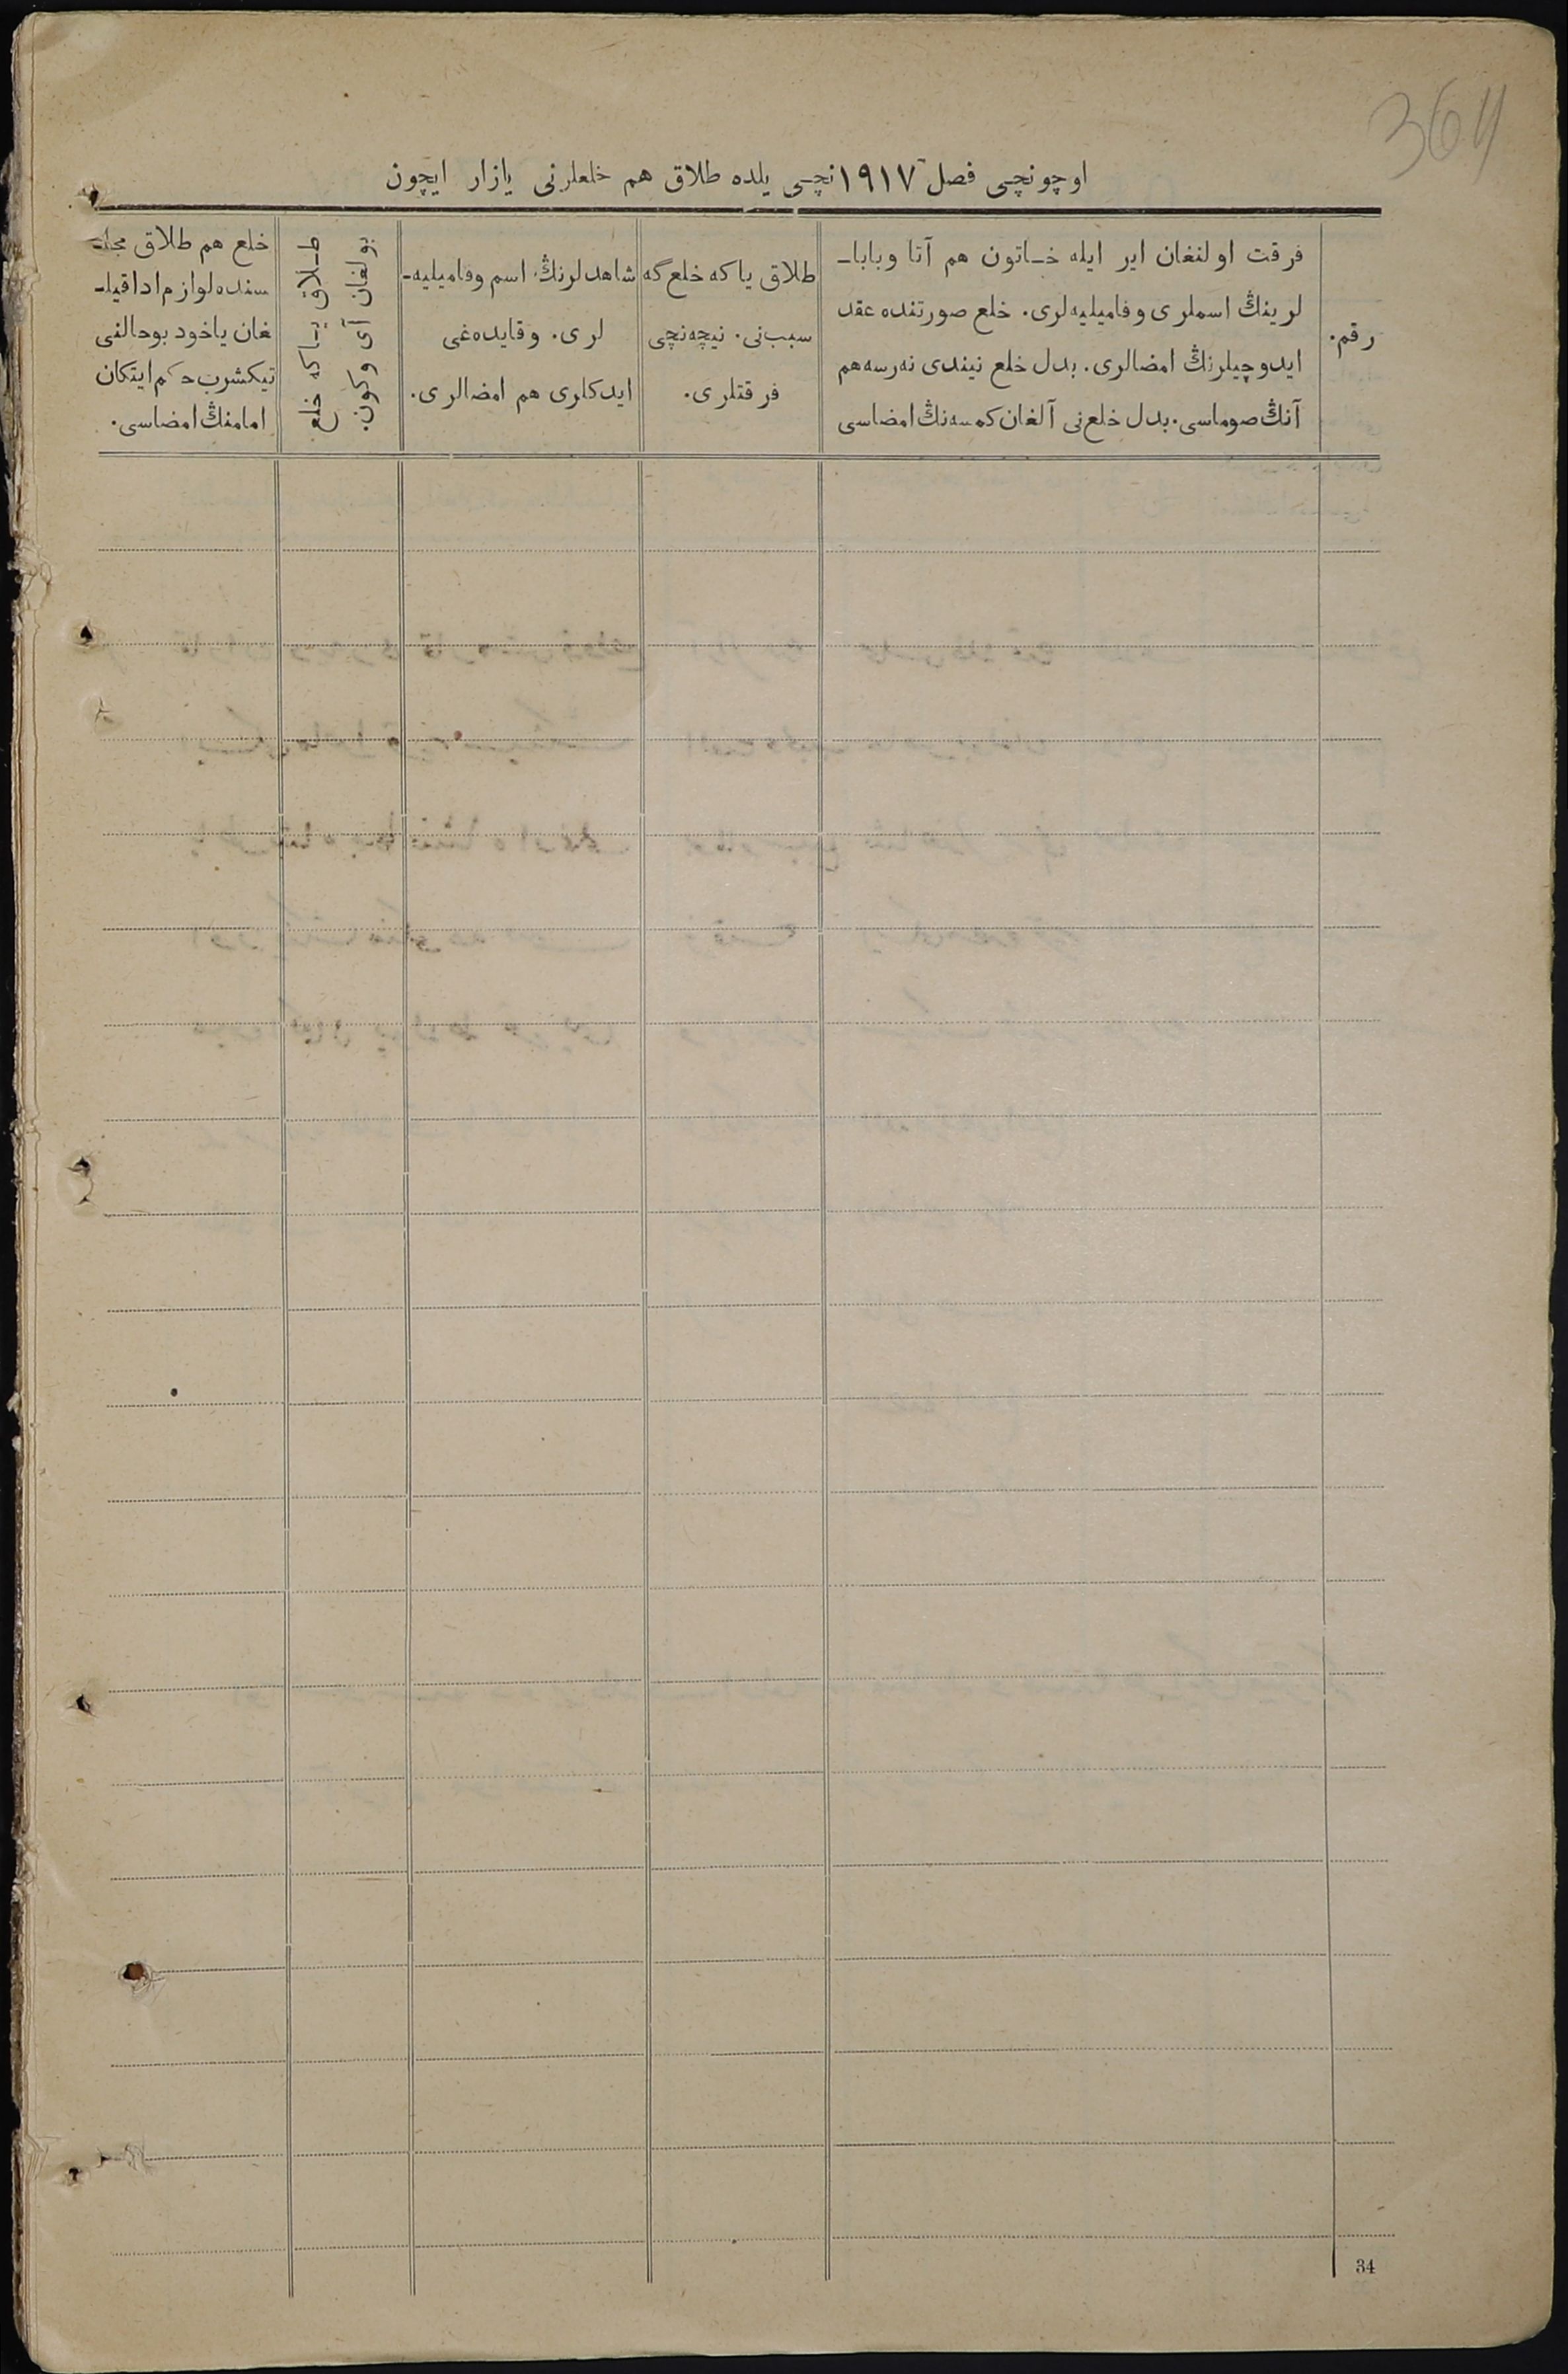 364
اوچونچی فصل ١٩١٧نچی یلده طلاق هم خلعلرنی یازار ایچون
رقم.
فرقت اولنغان ایر ایله خـاتون هم آتا وباباـ
لرینڭ اسملری وفامیلیه‌لری. خلع صورتنده عقد
ایدوچیلرنڭ امضالری. بدل خلع نیندی نه‌رسه‌هم
آنڭ صوماسی. بدل خلع‌نی آلغان کمسه‌نڭ امضاسی
طلاق یاکه خلع‌گه
سبب‌نی. نیچه‌نچی
فرقتلری.
شاهدلرنڭ اسم وفامیلیه‌ـ
لری. وقایده‌غی
ایدکلری هم امضالری.
طـلاق یـاکه خلع
بولغان آی وکون.
خلع هم طلاق مجلـ
سنده لوازم اداقیلـ
غان یاخود بوحالنی
تیکشرب حکم ایتکان
امامنڭ امضاسی.
34